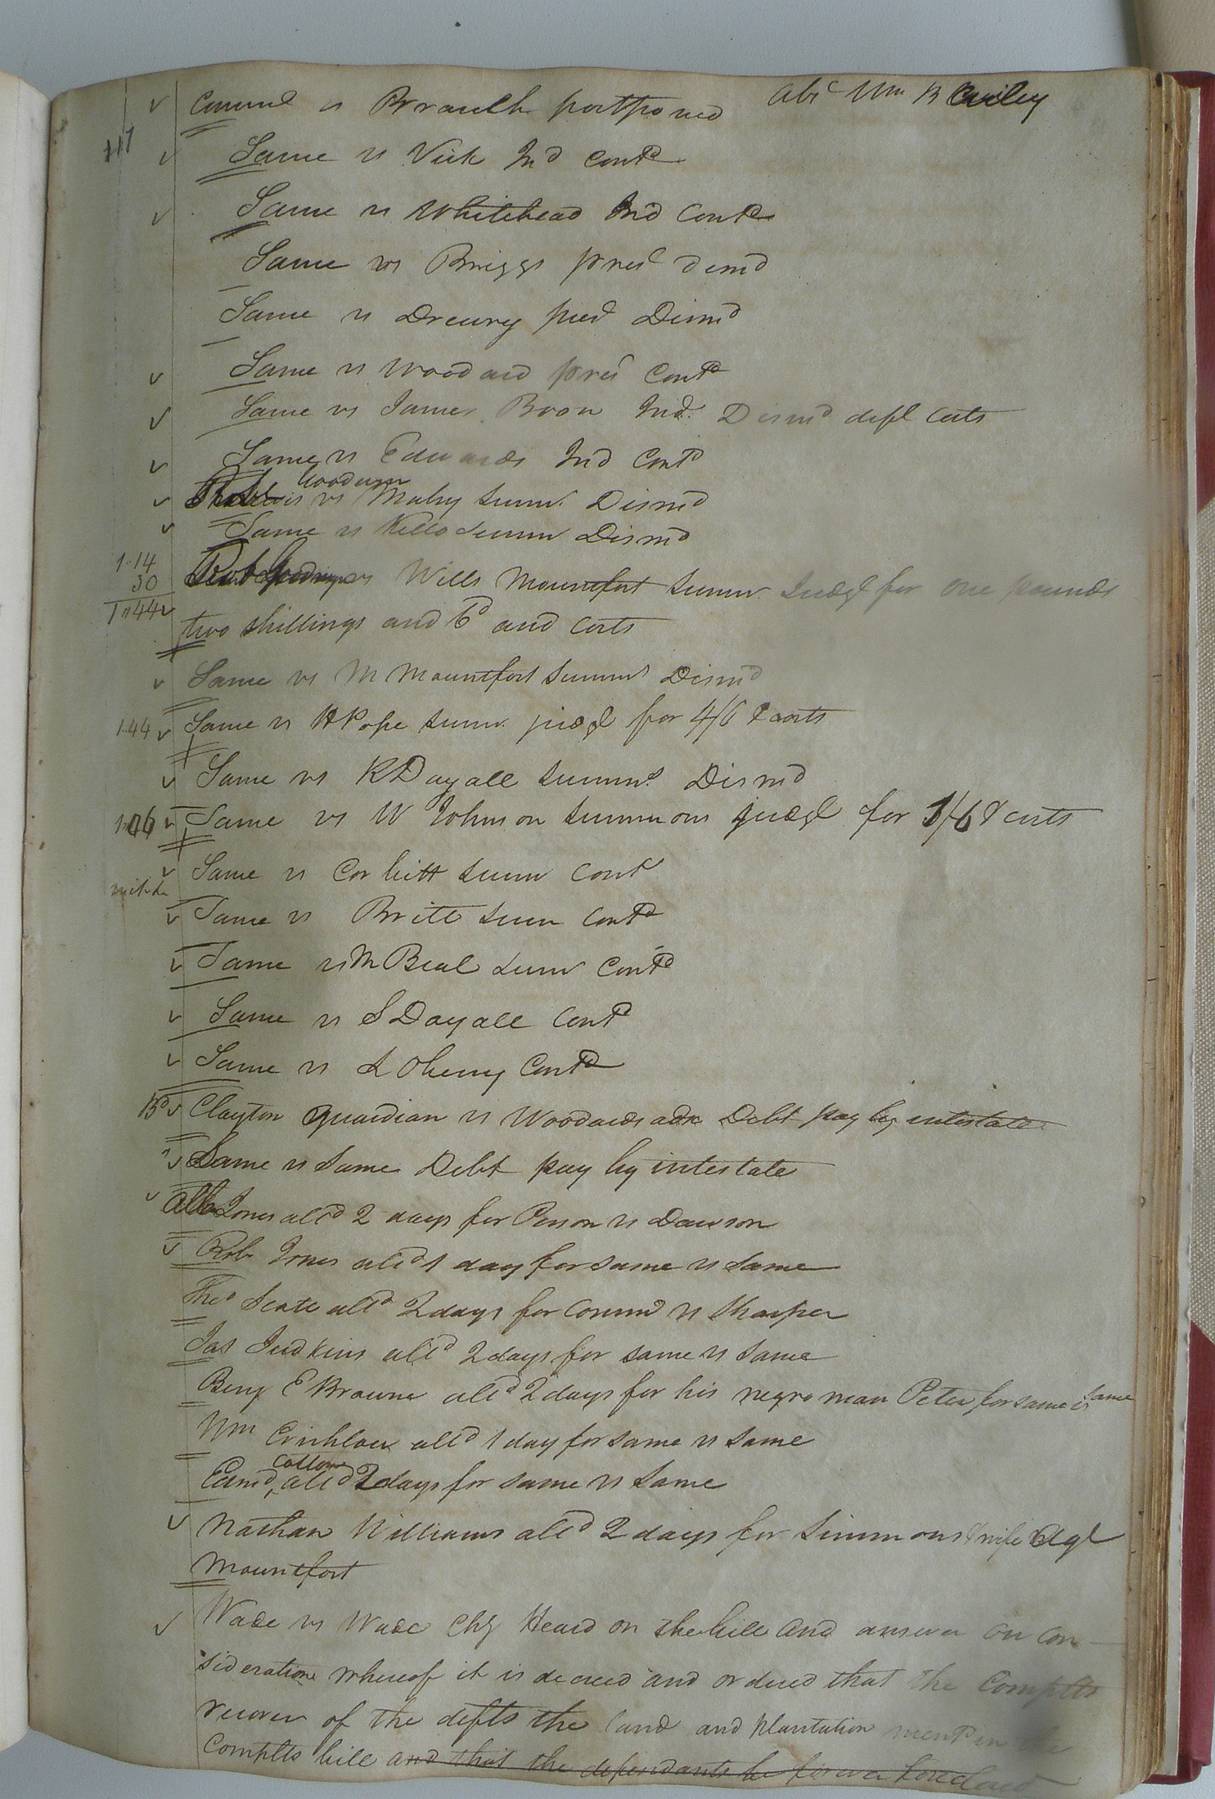 Comml vs Branch postponed Abs Wm B Bailey
117
Same vs Vick Ind contd
Same vs Whitehead Ind contd
Same vs Briggs pres dismd
Same vs Drewry pres Dismd
Same vs Woodard pres contd
Same vs James Boon Ind Dismd deft costs
Same vs Edwards Ind contd
Goodwin
vs Maby summ Dismd
Same vs Kello summ Dismd
1.14
30
1.44
Rob Goodwyn vs Wills Mountfort summ Judgt for one pounds
two shillings and 6d and costs
Same vs M Mountfort summs Dismd
1.44 Same vs H Pope summ judgt for 4/6 & costs
Same vs R Dayall summs Dismd
Same vs W Johnson summons judgt for 1/6 & costs
Same vs Corbitt summ contd
Same vs Britt summ contd
Same vs M Beal summ contd
Same vs S Dayall contd
Same vs contd
Clayton guardian vs Woodards adr Debt pay by intestate
Same vs Same Debt pay by intestate
Jones attd 2 days for Person vs Dawson
Rob Jones attd 1 day for same vs same
Thes Scate attd 2 days for Commd vs Sharper
Jas Judkins attd 2 days for same vs same
Benj E Browne attd 2 days for his negro man Peter for same vs same
Wm Crichlow attd 1 day for same vs same
Edmd, attd 2 days for same vs same
Nathan Williams attd 2 days for Simmons & wife agt
Mountfort
Wade vs Wade Chy Heard on the bill and answer on con-
sideration whereof it is decreed and ordered that the Complts
recover of the defts the land and plantation mentd in the
Complts bill and that the defendants be forever foreclosed